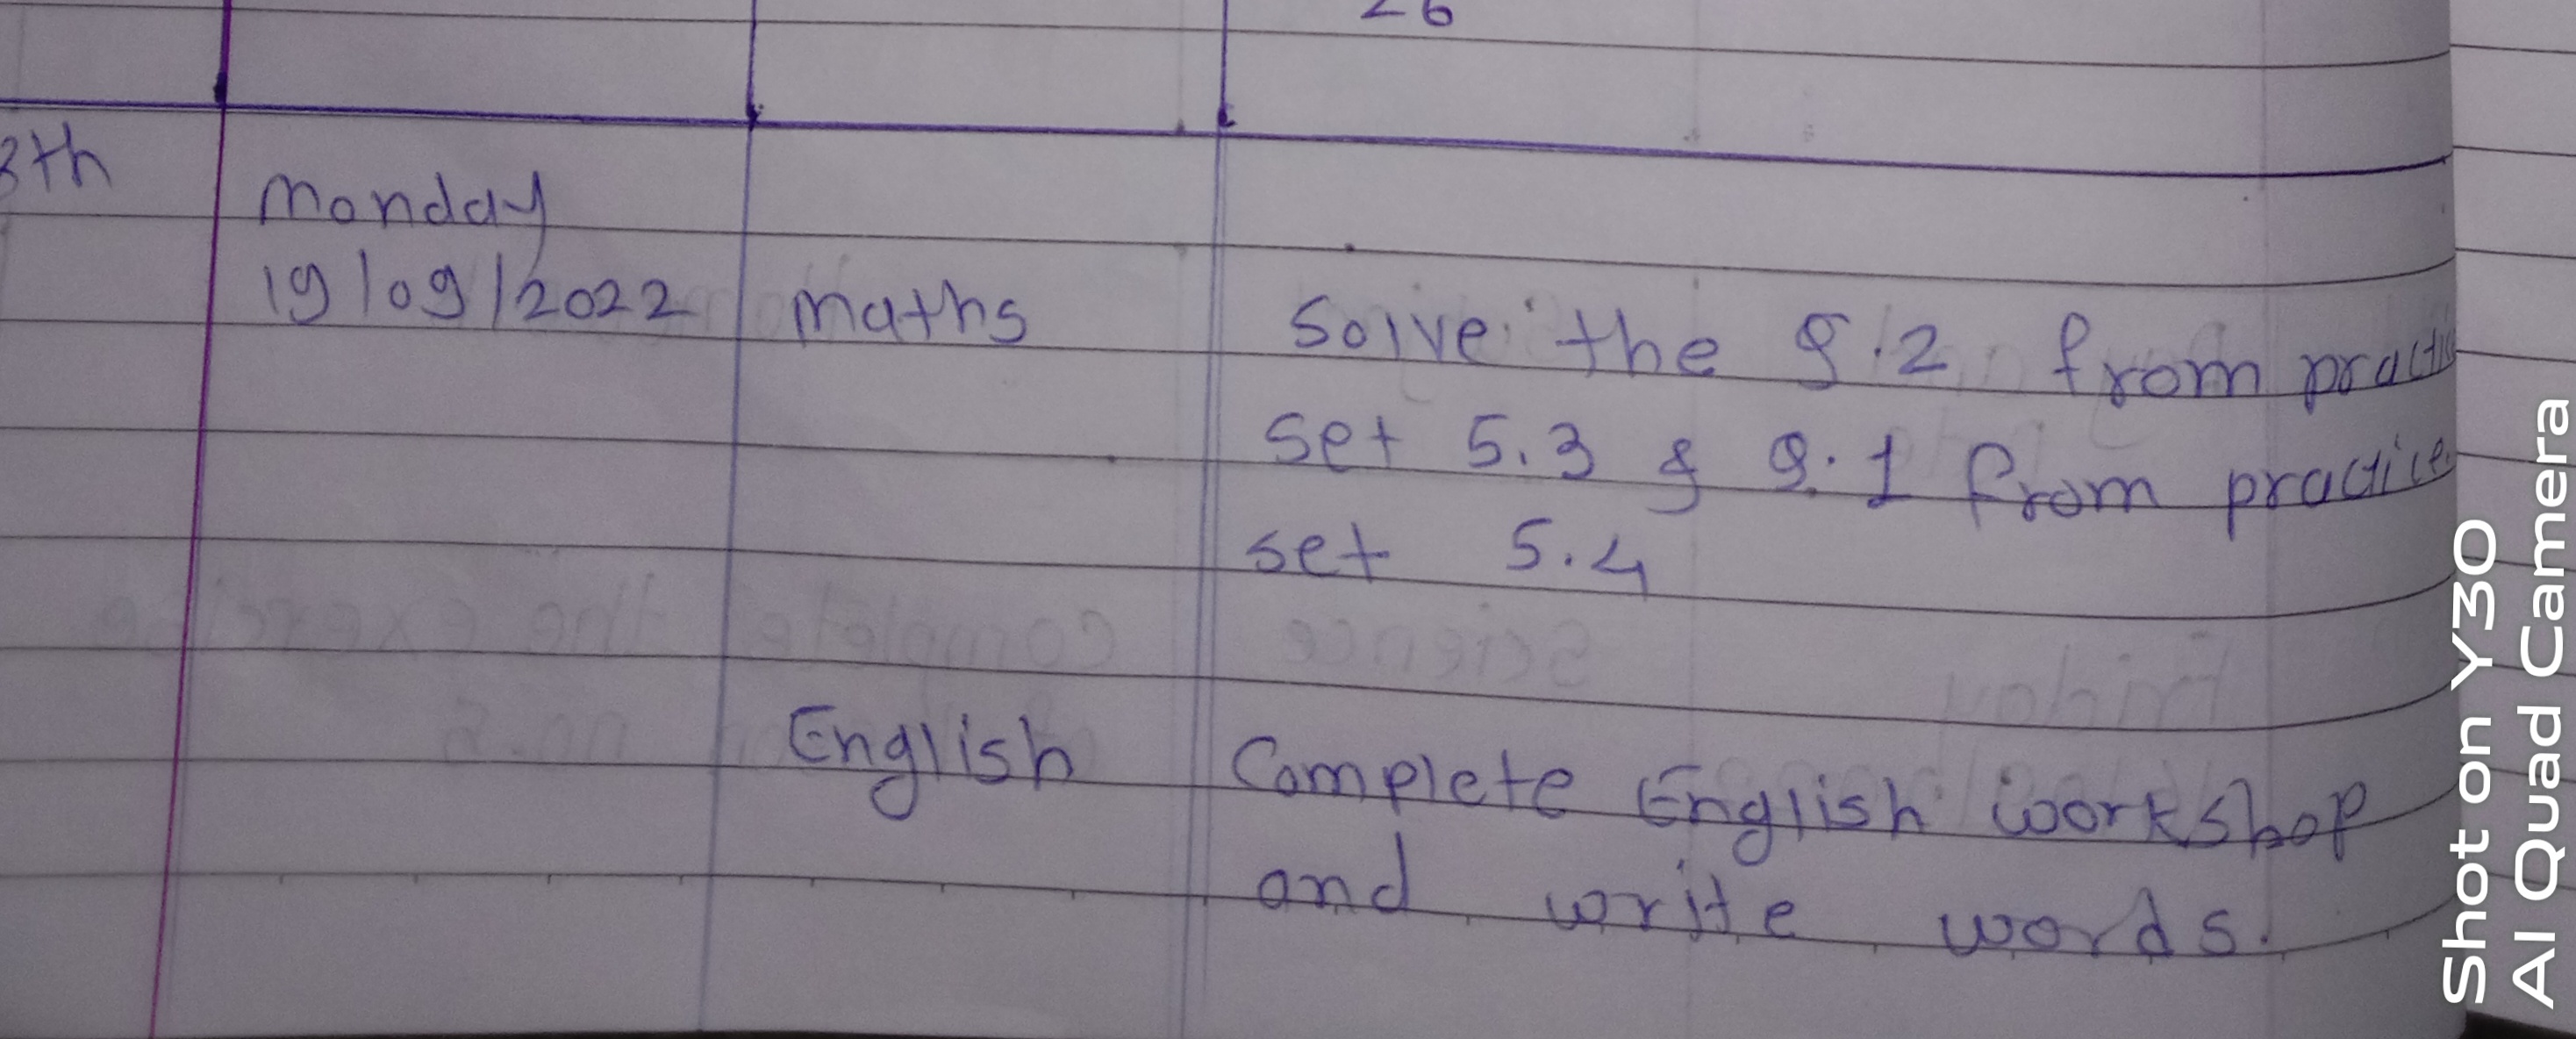 26
8th
Monday
19/09/2022 maths Solve the Q.2 from practice
set 5.3 & Q.1 from practice
set 5.4
English Complete English workshop
and write words.
Shot on Y30
AI Quad Camera